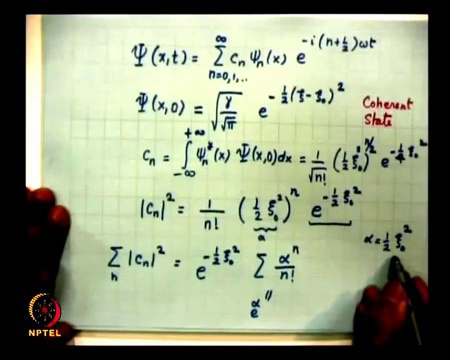 Ψ(x,t) = ∑_{n=0,1,..}^{∞} c_n ψ_n(x) e^{-i(n+1/2)ωt}
Ψ(x,0) = √(γ/√π) e^{-1/2(ξ-ξ₀)²}
Coherent
State
c_n = ∫_{-∞}^{+∞} ψ_n*(x) Ψ(x,0)dx = 1/√n! (1/2 ξ₀²)^{n/2} e^{-1/4 ξ₀²}
|c_n|² = 1/n! (1/2 ξ₀²)^n e^{-1/2 ξ₀²}
α = 1/2 ξ₀²
∑_n |c_n|² = e^{-1/2 ξ₀²} ∑ α^n/n!
e^α
NPTEL